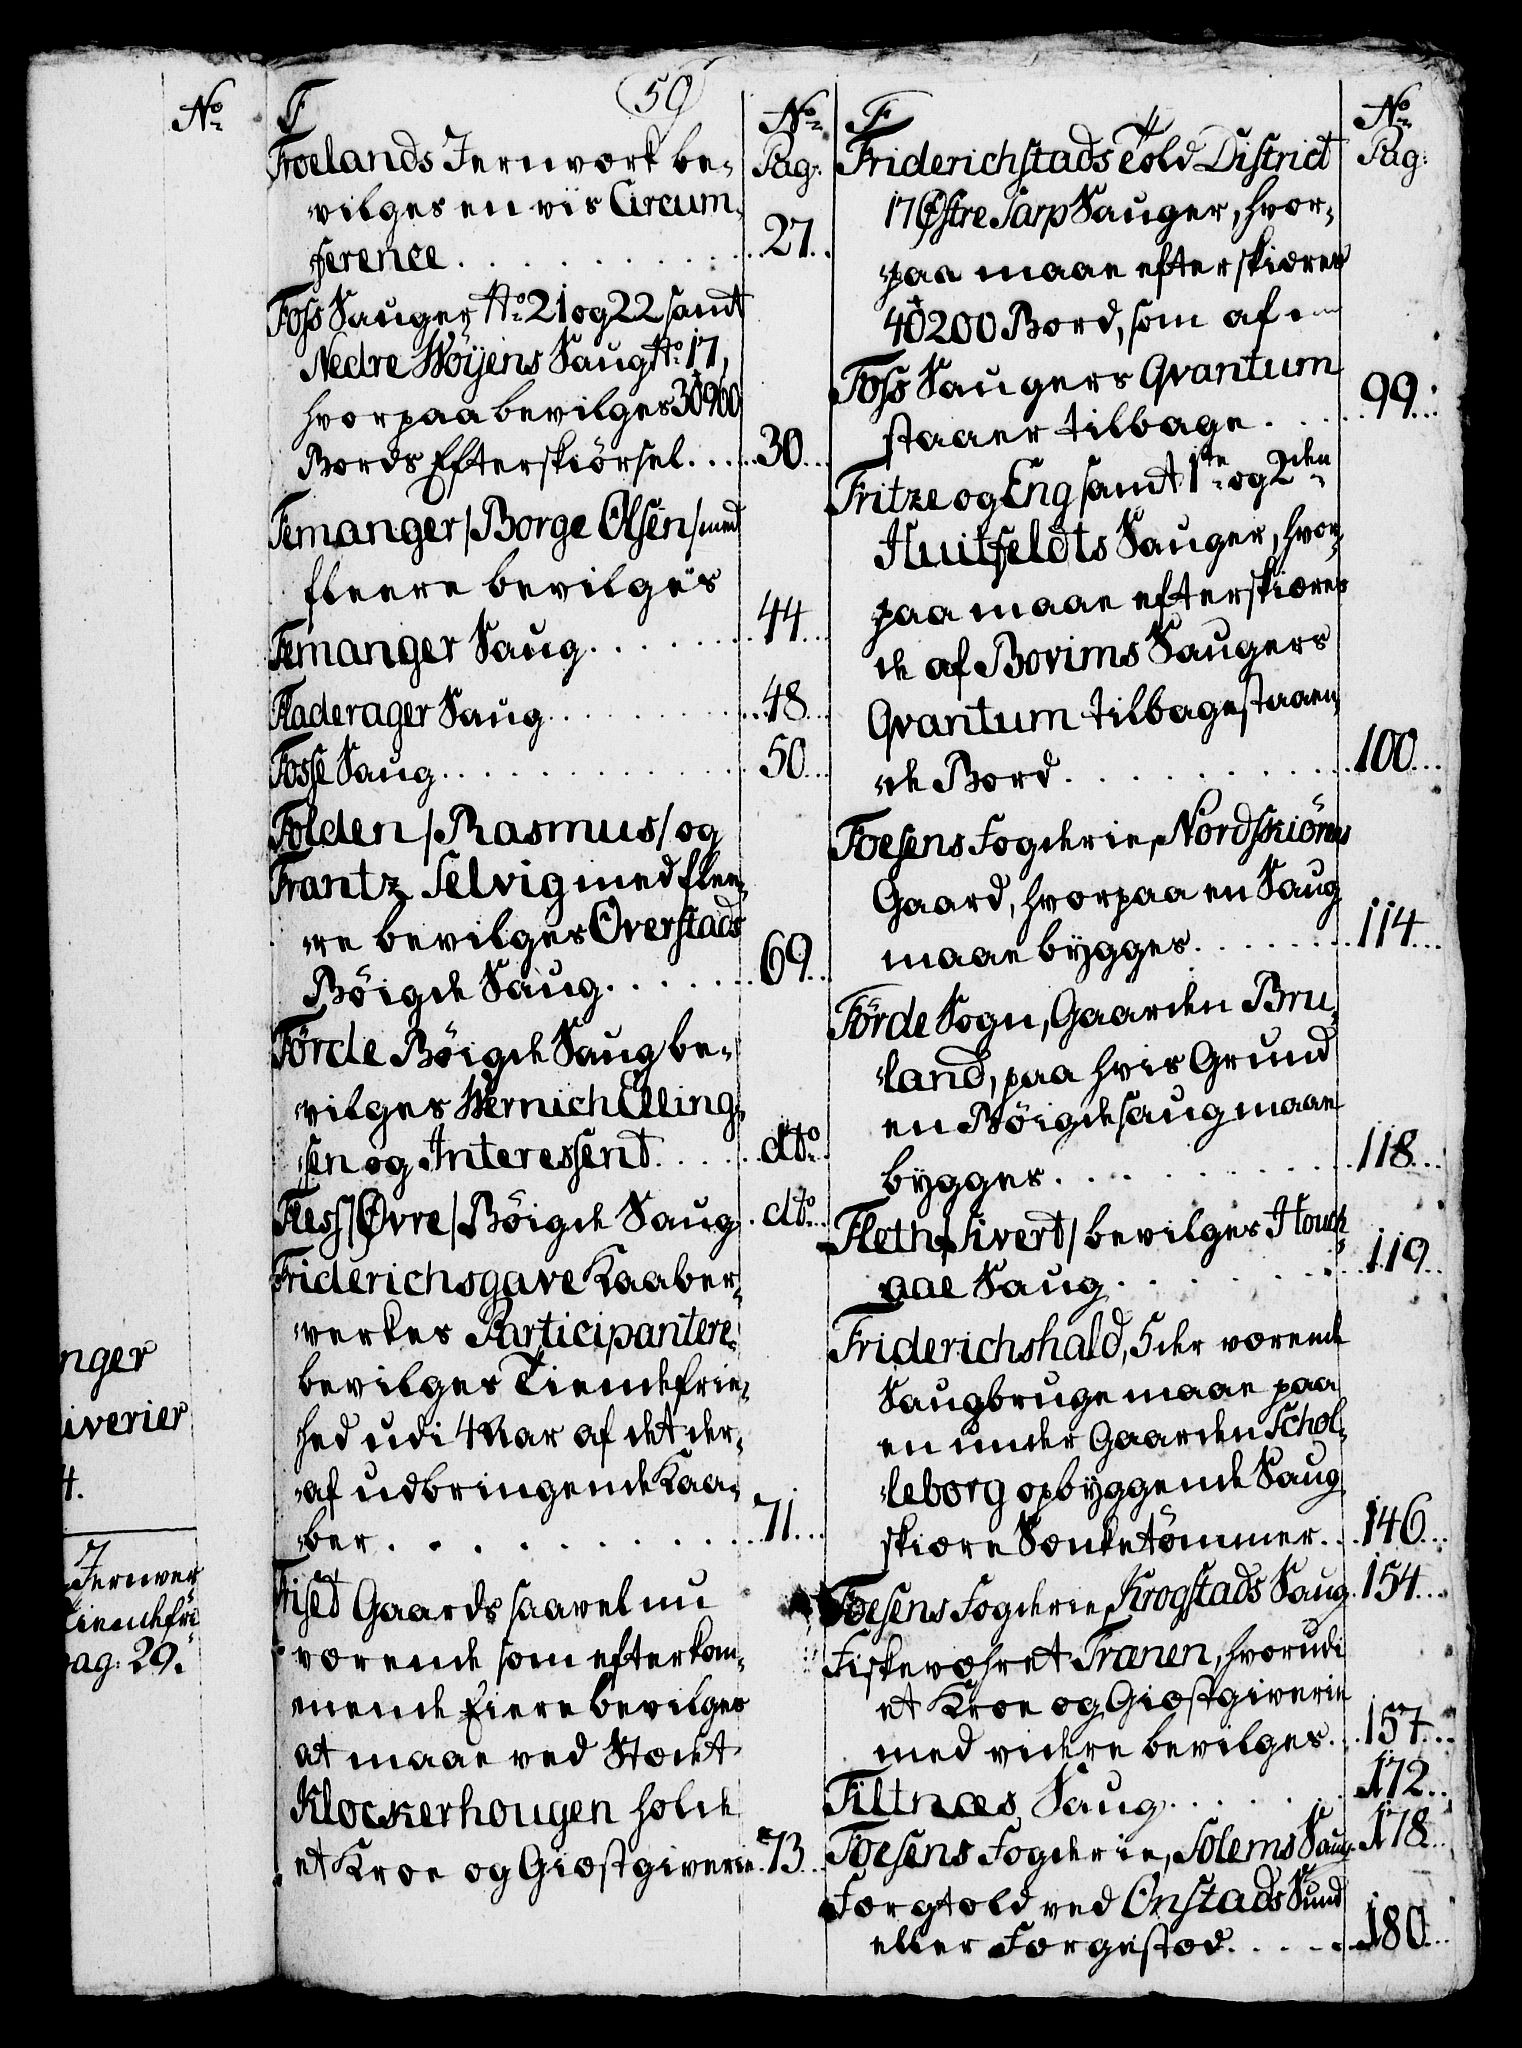 No
nger
iverier
4.
Jernver
Tiendefri
pag: 29.
59
F
No
Pag:
Froelands Jernværk be-
vilges en vis Circum-
ference . . . 27.
Foss Sauger No 21 og 22 samt
Nedre Wöyens Saug No 17,
hvorpaa bevilges 30960
Bords Efterskiörsel . . . 30.
Femanger /Borge Olsen/ med
fleere bevilges
Femanger Saug . . . 44.
Fladerager Saug . . . 48.
Fosse Saug . . . 50.
Folden /Rasmus/ og
Frantz Selvig med flee-
re bevilges Overstads
Böigde Saug . . . 69.
Förde Böigde Saug be-
vilges Wernich Elling-
sen og Interessent . . . dto
Fless /Øvre/ Böigde Saug . dto
Friderichsgave Kaaber-
verkes Participantere
bevilges Tiendefrie-
hed udi 4 Aar af det der-
af udbringende Kaa-
ber . . . 71.
Fiset Gaards saavel nu
værende som efterkom-
mende Eiere bevilges
at maae ved Stædet
Klockerhougen holde
et Kroe og Giæstgiverie . 73.
F
No
Pag:
Friderichstads Told District
17 Østre Sarp Sauger, hvor-
paa maae efterskiæres
40200 Bord, som af
Foss Saugers Qvantum
staaer tilbage . . . 99.
Fritze og Eng samt 1te og 2den
Huitfeldts Sauger, hvor-
paa maae efterskiæres
de af Bovims Saugers
Qvantum tilbagestaaen-
de Bord . . . 100.
Foesens Fogderie, Nordskiörns
Gaard, hvorpaa en Saug
maae bygges . . . 114.
Förde Sogn, Gaarden Bru-
land, paa hvis Grund
en Böigdesaug maae
bygges . . . 118.
Fleth /Sivert/ bevilges Houch-
aae Saug . . . 119.
Friderichshald, 5 der værende
Saugbruge maae paa
en under Gaarden Schol-
leborg opbyggende Saug
skiære Sænketömmer . . . 146.
Foesens Fogderie, Krogstads Saug . 154.
Fiskeværet Trænen, hvorudi
et Kroe og Giæstgiverie
med videre bevilges . . 157.
Filtnæs Saug . . . 172.
Foesens Fogderie, Solems Saug . 178.
Færgtold ved Onstads Sund
eller Færgestæd . . . 180.